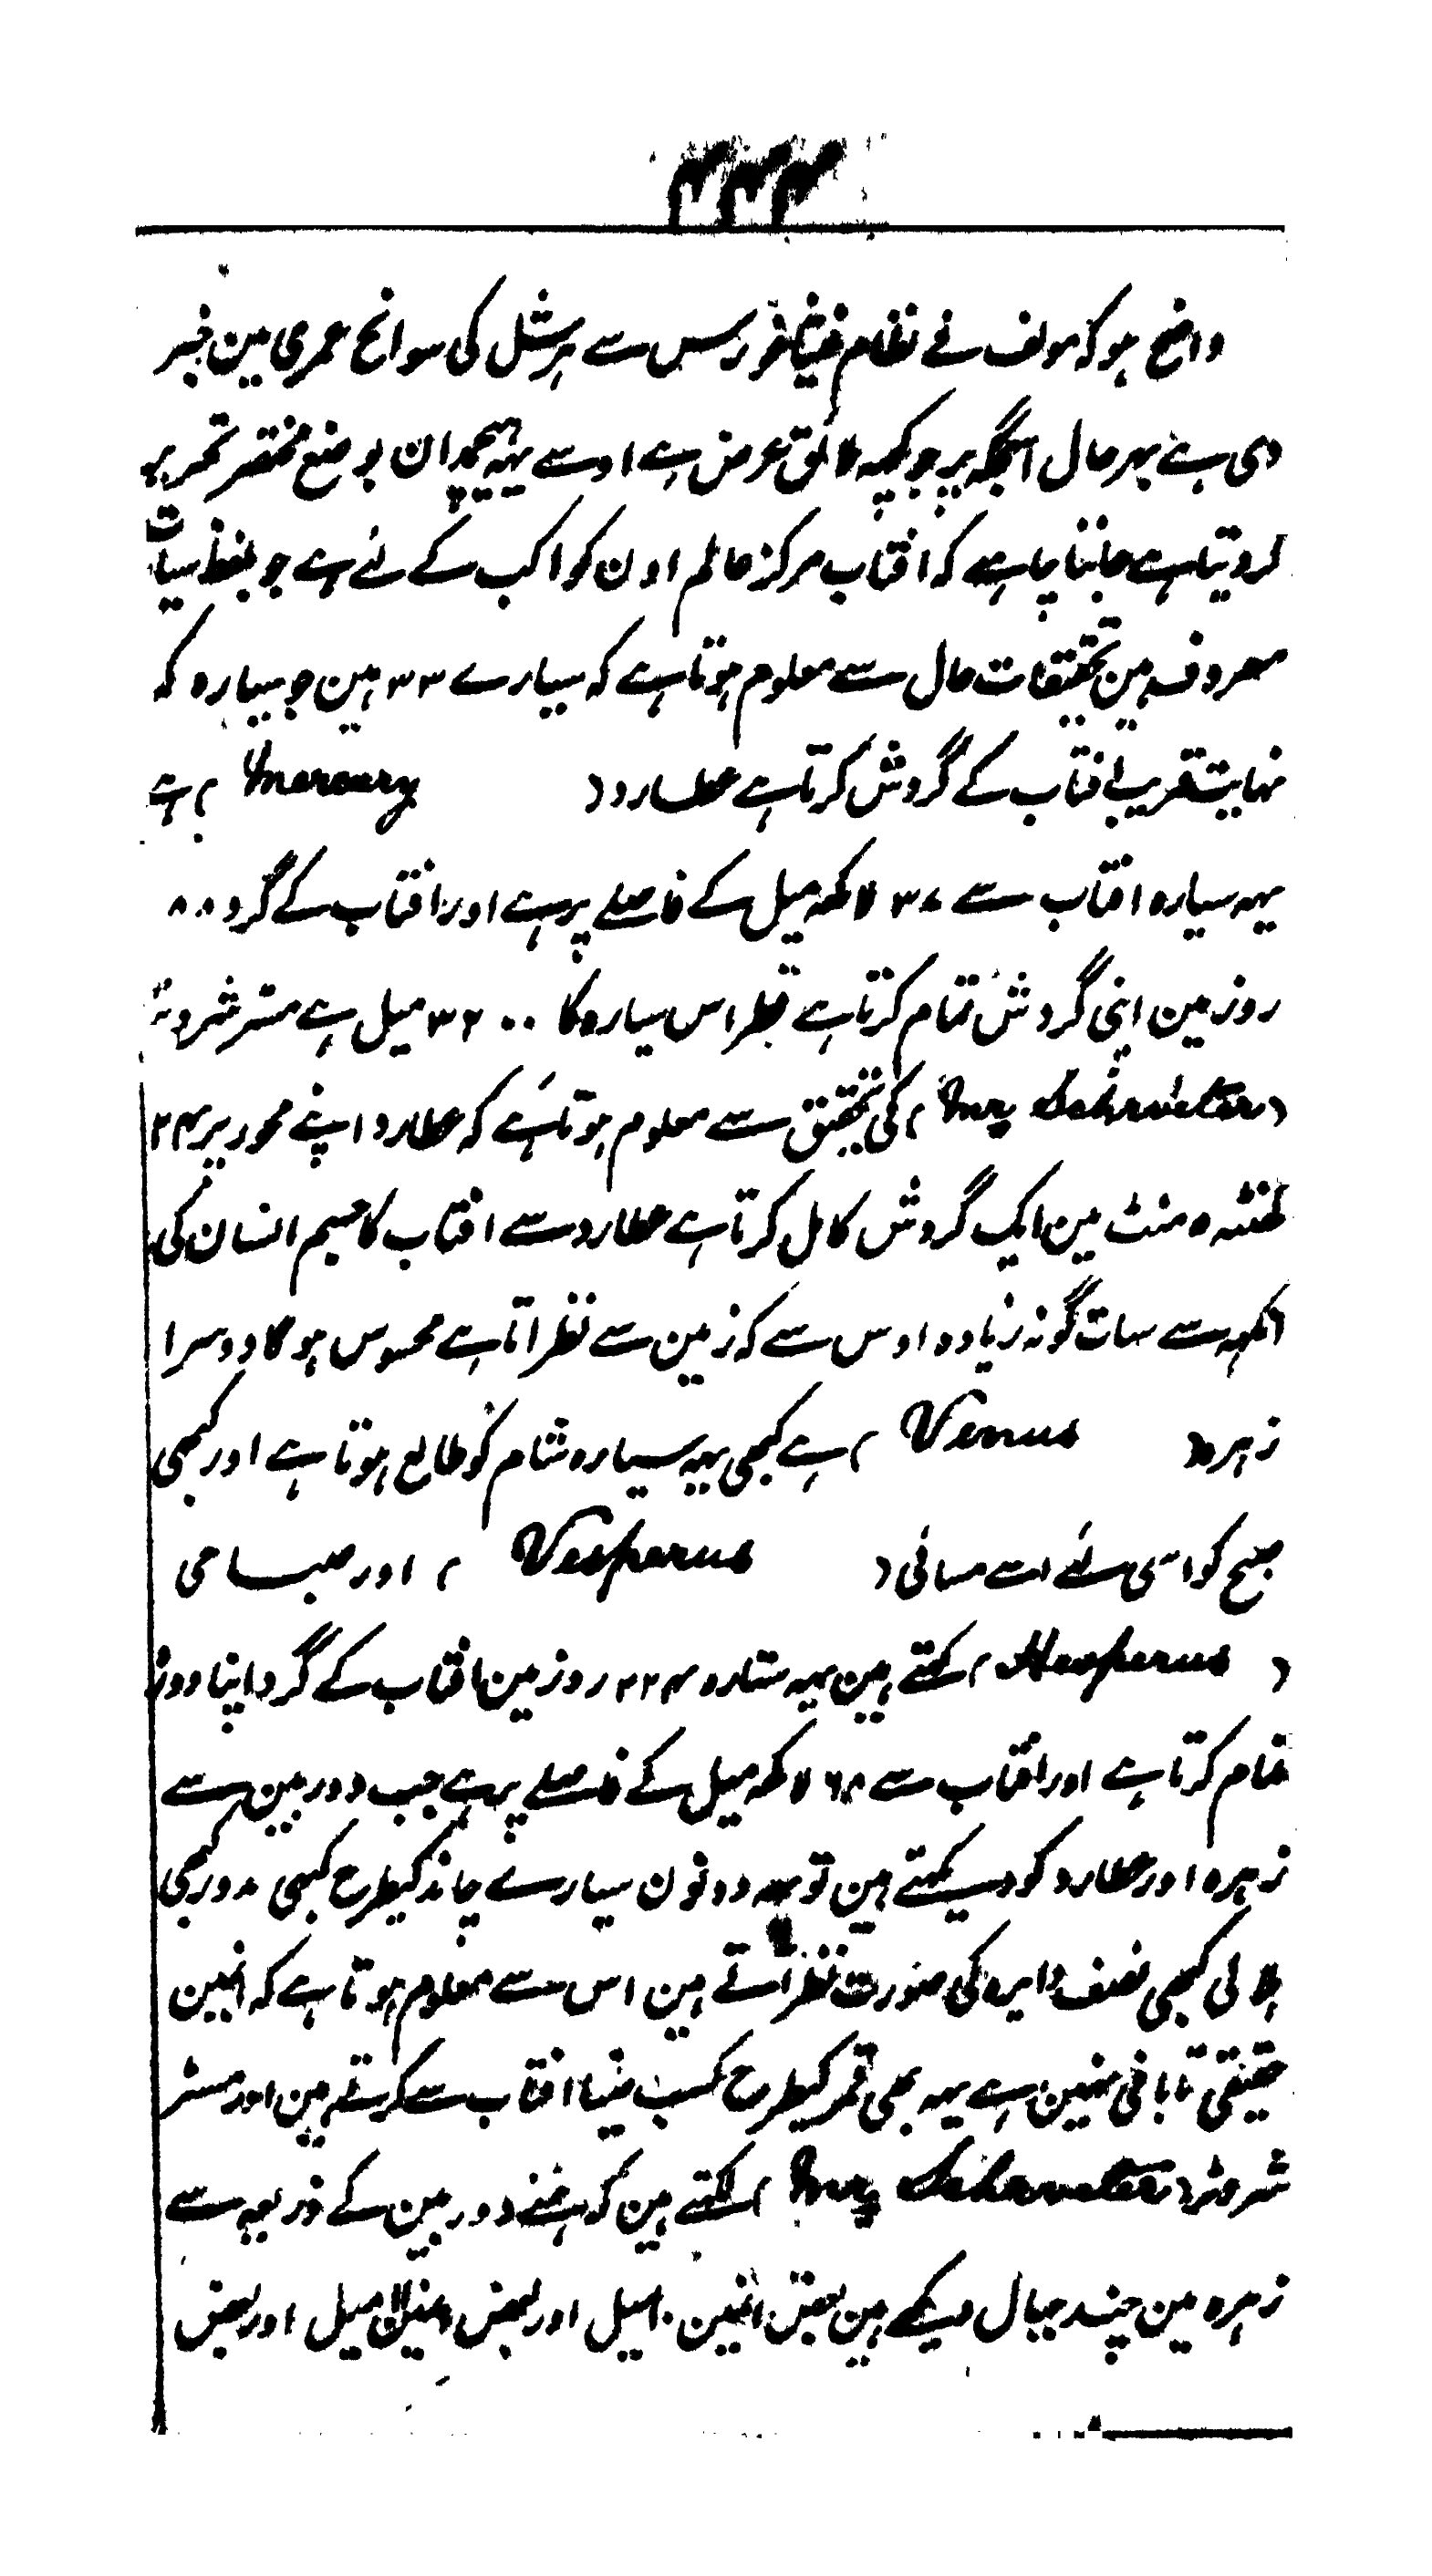 ۴۴۴
واضح ہو کہ مولف نے نظام فیثاغورس سے ہرشل کی سوانح عمری مین خبر
دی ہے بہر حال اسجگہ پر جو کچہہ لائق عرض ہے اوسے یہہ ہیچمدان بوضع مختصر تحریر
کر دیتا ہے جاننا چاہے کہ افتاب مرکز عالم اون کواکب کے لئے ہے جو بلفظ سیارات
معروف ہین تحقیقات حال سے معلوم ہوتا ہے کہ سیارے ۳۳ ہین جو سیارہ کہ
نہایت قریب افتاب کے گردش کرتا ہے عطارد ( Mercury ) ہے
یہہ سیارہ افتاب سے ۳۷ لاکھہ میل کے فاصلے پر ہے اور افتاب کے گرد ۸۸
روز مین اپنی گردش تمام کرتا ہے قطر اس سیارہ کا ۳۲۰۰ میل ہے مسٹر شروٹر
( Mr. Schroeter ) کی تحقیق سے معلوم ہوتا ہے کہ عطارد اپنے محور پر ۲۴
گھنٹہ ۵ منٹ مین ایک گردش کامل کرتا ہے عطارد سے افتاب کا جسم انسان کی
انکہہ سے سات گونہ زیادہ اوس سے کہ زمین سے نظر اتا ہے محسوس ہوگا دوسرا
زہرہ ( Venus ) ہے کبھی یہہ سیارہ شام کو طالع ہوتا ہے اور کبھی
صبح کو اسی لئے اسے مسائی ( Vesperus ) اور صباحی
( Hesperus ) کہتے ہین یہہ ستارہ ۲۲۴ روز مین افتاب کے گرد اپنا دورہ
تمام کرتا ہے اور افتاب سے ۶۸ لاکھہ میل کے فاصلے پر ہے جب دوربین سے
زہرہ اور عطارد کو دیکہتے ہین تو یہہ دونون سیارے چاند کیطرح کبہی مدور کبھی
ہلالی کبھی نصف دایرہ کی صورت نظر اتے ہین اس سے معلوم ہوتا ہے کہ انہین
حقیقی تابانی نہین ہے یہہ بھی قمر کیطرح کسب ضیا افتاب سے کرتے ہین اور مسٹر
شروٹر ( Mr. Schroeter ) لکہتے ہین کہ ہمنے دوربین کے ذریعہ سے
زہرہ مین چند جبال دیکہے ہین بعض انہین ۱۰ میل اور بعض میل اور بعض